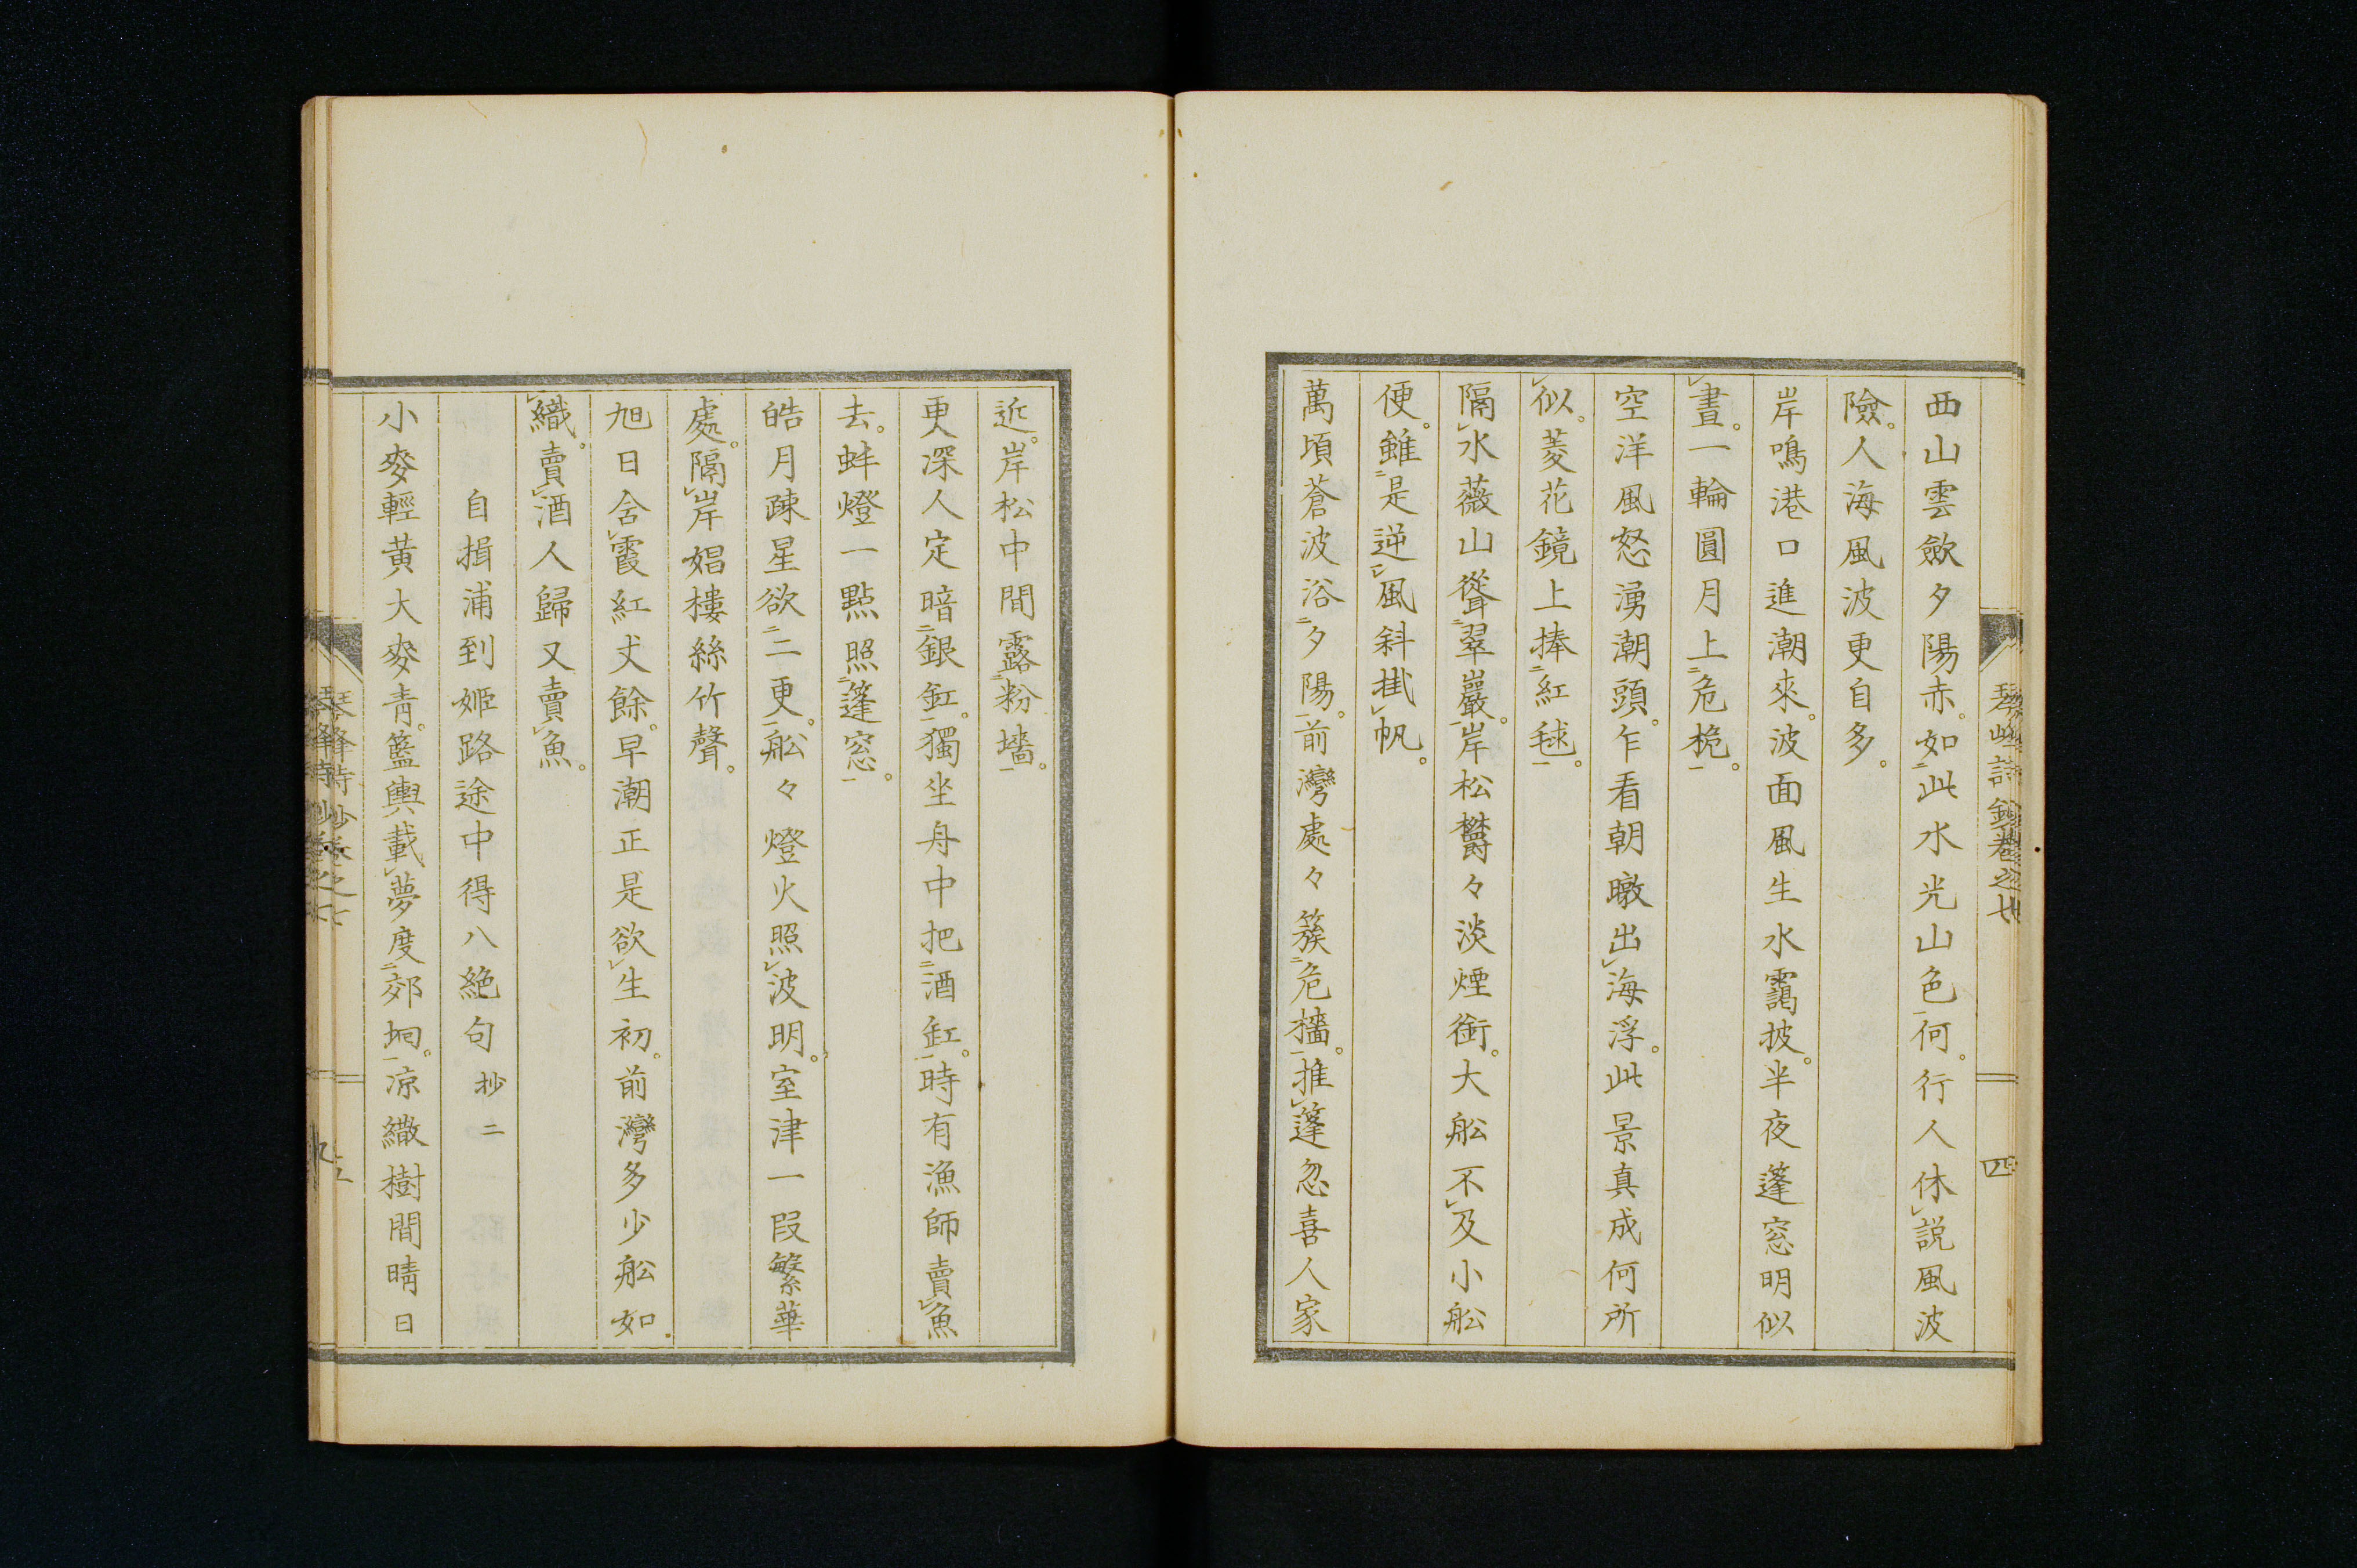 西山雲歛夕陽赤。如二此水光山色一何。行人休レ説風波
險。人海風波更自多。
岸鳴港口進潮來。波面風生水靄披。半夜蓬窓明似
レ晝。一輪圓月上二危桅一。
空洋風怒湧潮頭。乍看朝暾出レ海浮。此景真成何所
レ似。菱花鏡上捧二紅毬一。
隔レ水薇山聳二翠巖一。岸松欝々淡煙銜。大舩不レ及小舩
便。雖二是逆一レ風斜掛レ帆。
萬頃蒼波浴二夕陽一。前灣處々簇二危檣一。推レ蓬忽喜人家
近。岸松中間露二粉墻一。
更深人定暗二銀釭一。獨坐舟中把二酒缸一。時有漁師賣レ魚
去。蚌燈一點照二篷窓一。
皓月疎星欲二二更一。舩々燈火照レ波明。室津一段繁華
處。隔レ岸娼樓絲竹聲。
旭日含レ霞紅丈餘。早潮正是欲レ生初。前灣多少舩如
レ織。賣レ酒人歸又賣レ魚。
自揖浦到姫路途中得八絶句 抄二
小麥輕黄大麥青。籃輿載レ夢度二郊坰一。凉繖樹間晴日